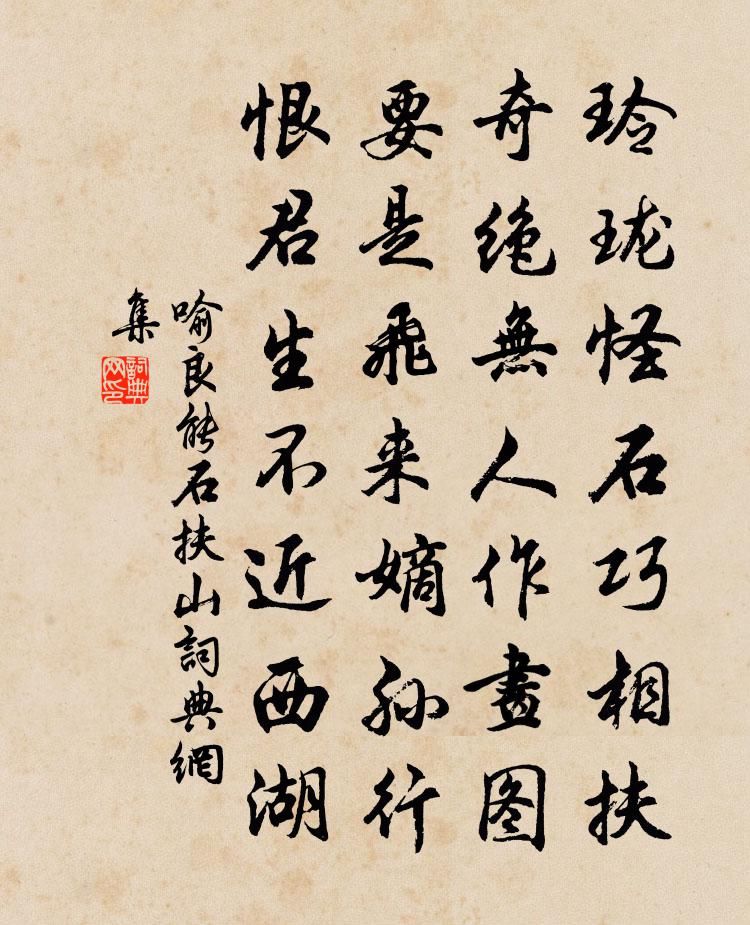 玲珑怪石巧相扶
奇绝無人作畫图
要是飛来嫡孙行
恨君生不近西湖
喻良能石扶山詞典網
集
詞典网印